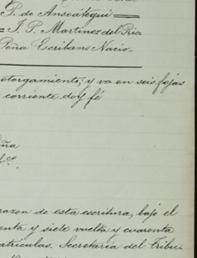 P. de Anseátegui
J. P. Martinez del Rio
Peña Escribano Nacio.
otorgamiento, y va en seis fojas
corriente doy fé
razon de esta escritura, bajo el
enta y siete vuelta y cuarenta
atriculas. Secretaria del Tribu